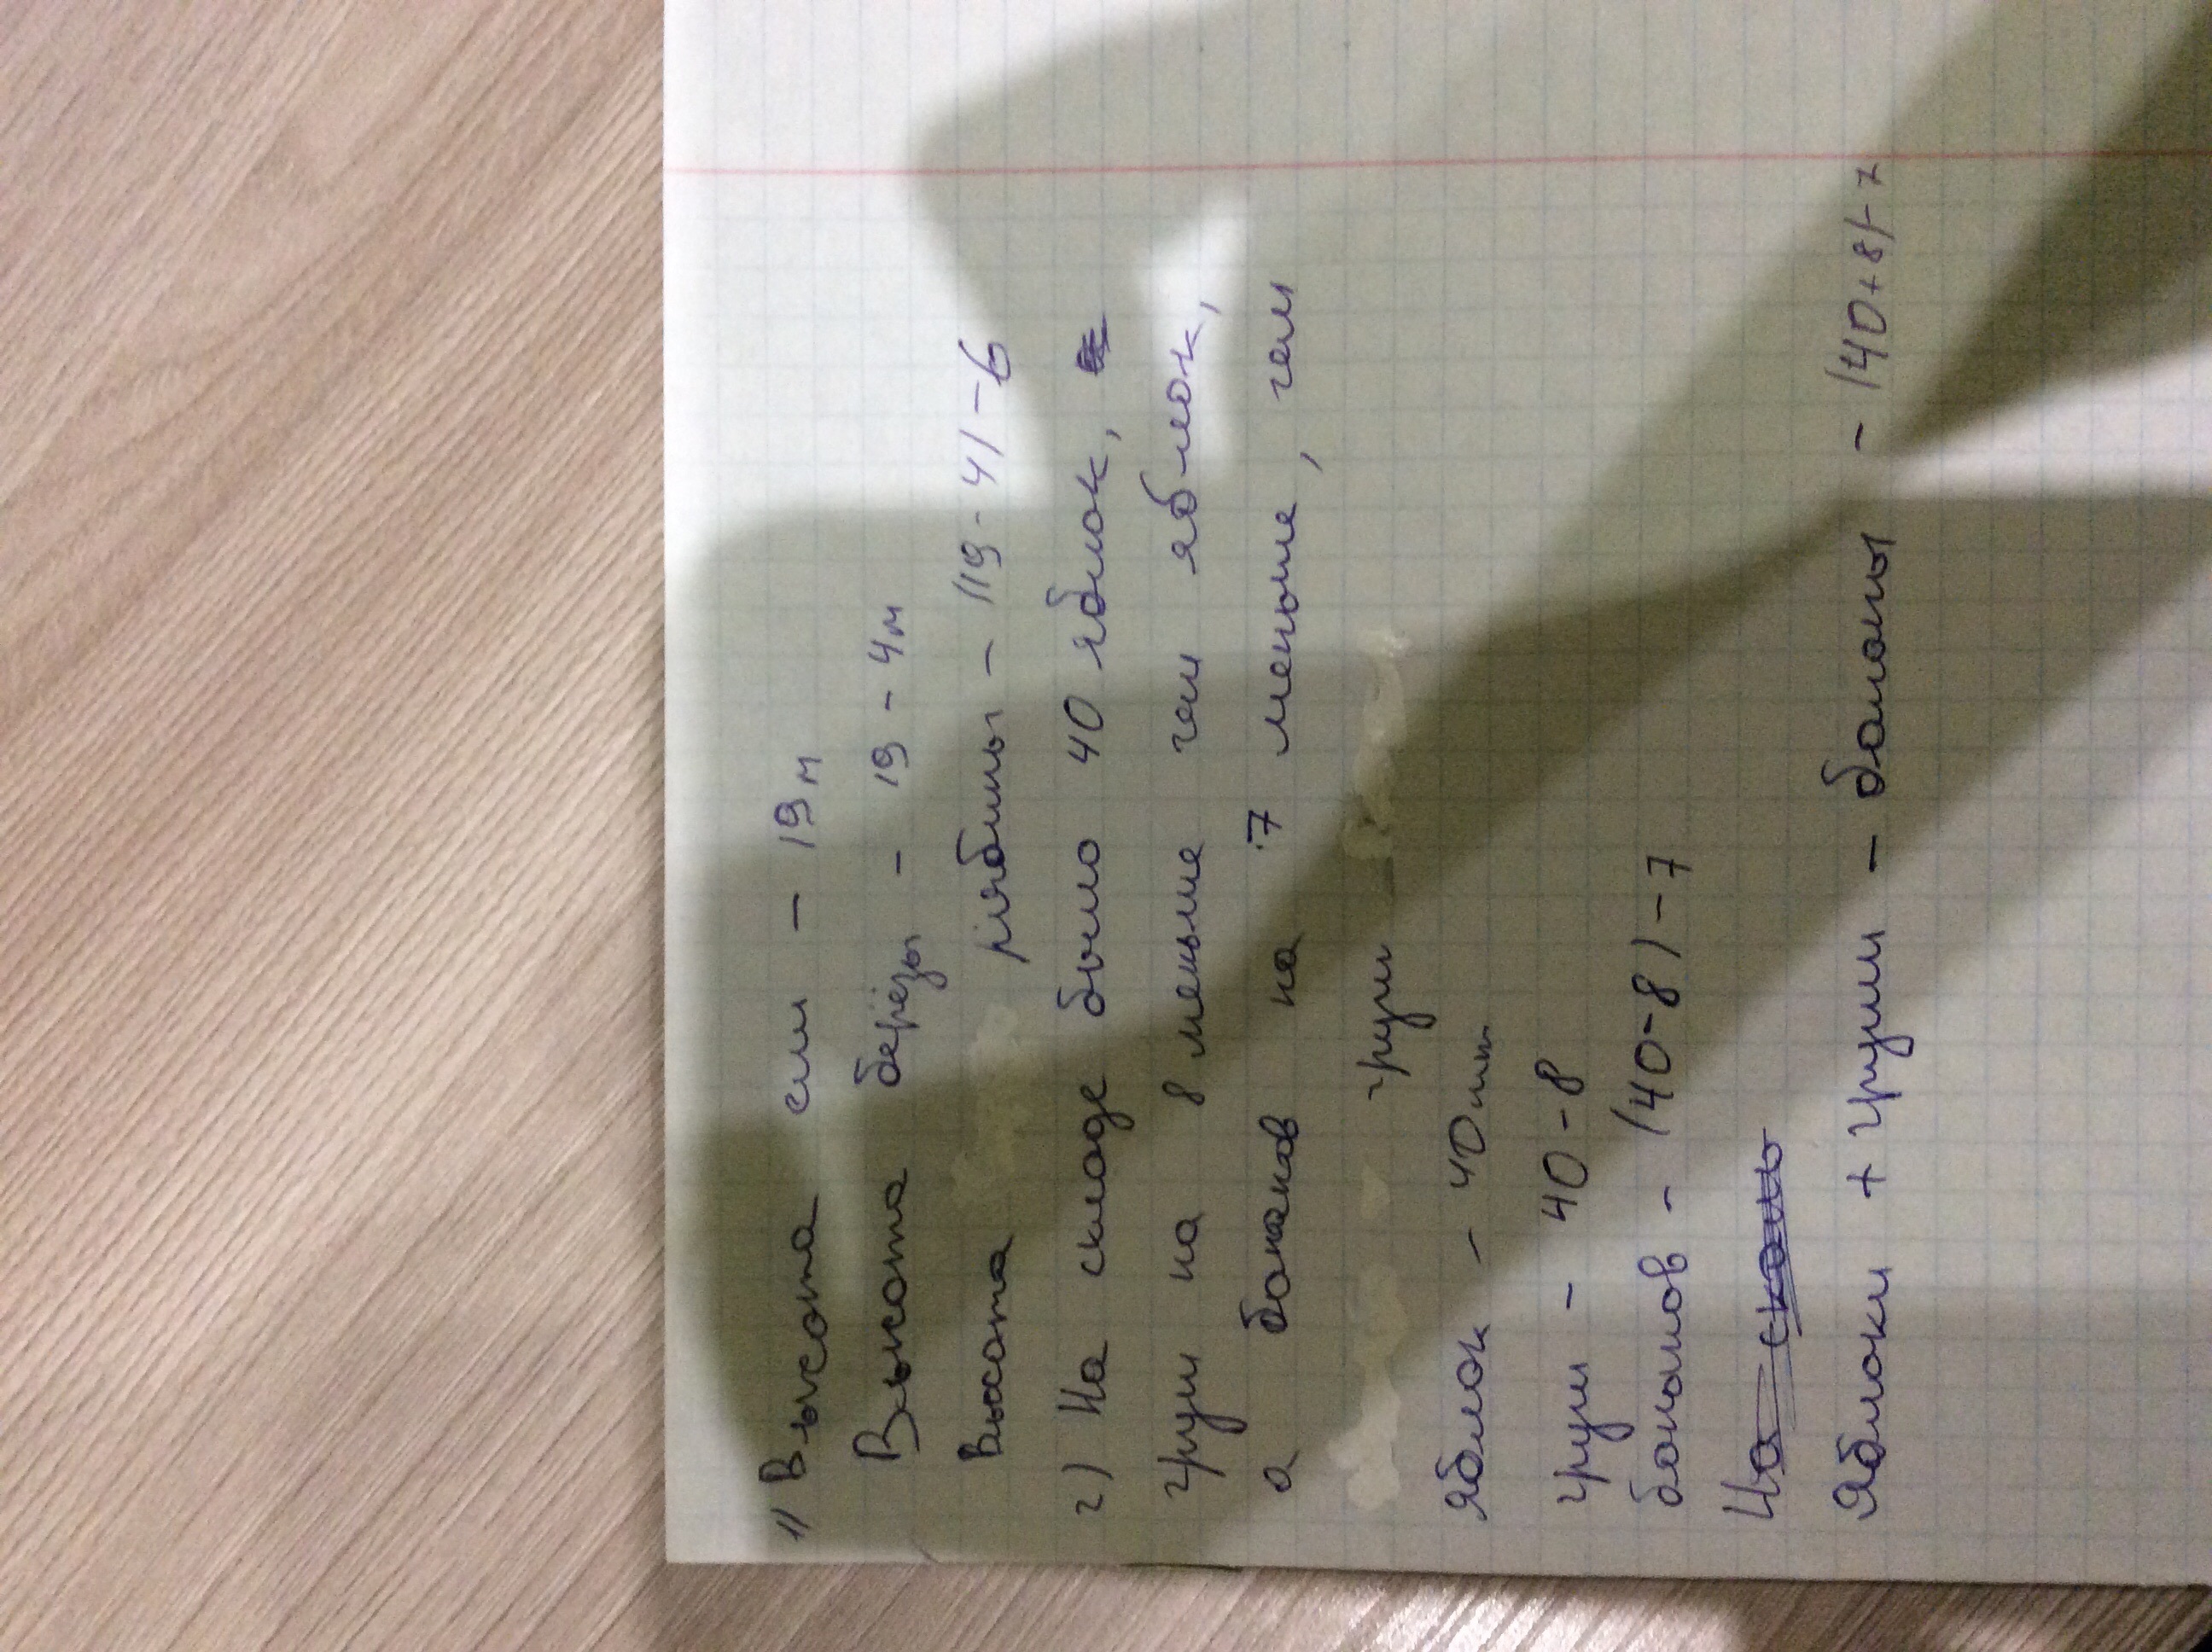 1) Высота ели - 19м
Высота берёзы - 19 - 4м
Высота рябины - (19 - 4) - 6
2) На складе было 40 яблок,
груш на 8 меньше чем яблок,
а бананов на 7 меньше, чем
груш
яблок - 40шт
груш - 40 - 8
бананов - (40 - 8) - 7
Яблоки + груши - бананы - (40 + 8) - 7